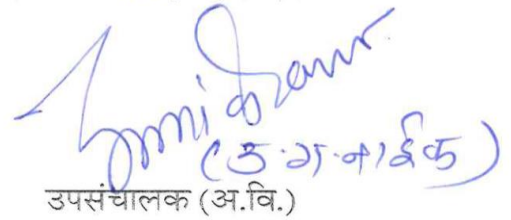 (उ.ग.नाईक)
उपसंचालक (अ.वि.)